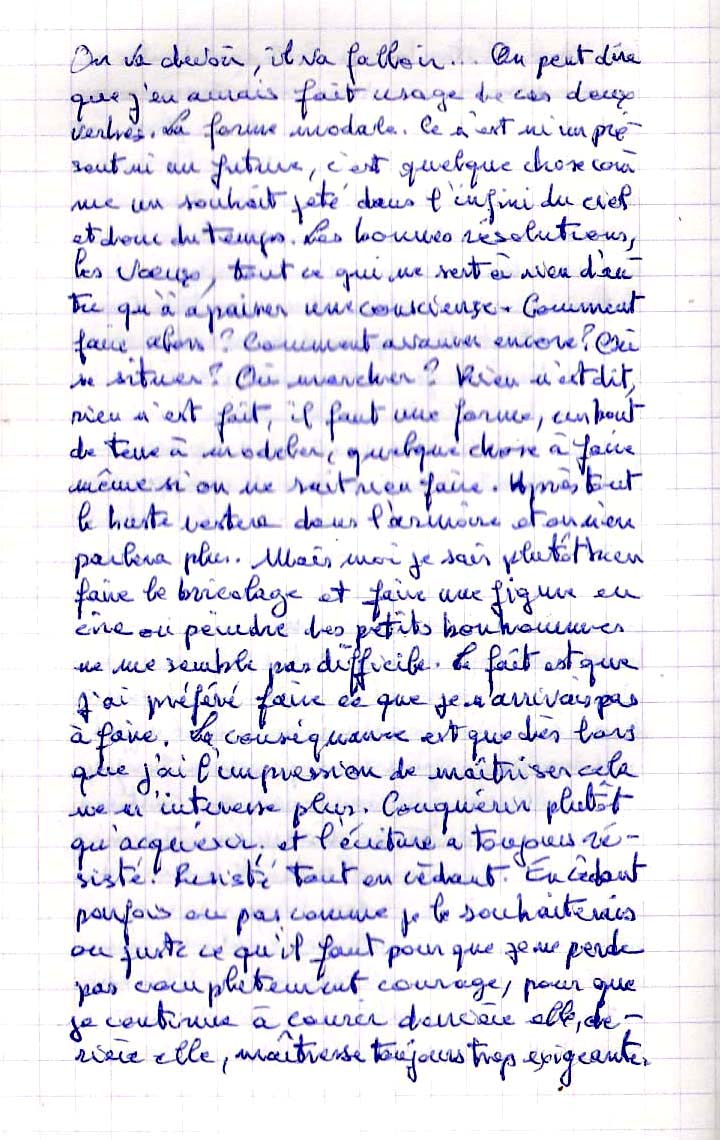 On va devoir, il va falloir... On peut dire
que j'en aurais fait usage de ces deux
verbes. La forme modale. Ce n'est ni un pré-
sent ni un future, c'est quelque chose com
me un souhait jeté dans l'infini du ciel
et donc du temps. Les bonnes résolutions,
les voeux, tout ce qui ne sert à rien d'au-
tre qu'à apaiser une conscience. Comment
faire alors ? Comment avancer encore ? Où
se situer ? Où marcher ? Rien n'est dit,
rien n'est fait, il faut une forme, un bout
de terre à modeler, quelque chose à faire
même si on ne sait rien faire. Après tout
le buste restera dans l'armoire et on n'en
parlera plus. Mais moi je sais plutôt bien
faire le bricolage et faire une figure en
cire ou peindre des petits bonhommes
ne me semble pas difficile. Le fait est que
j'ai préféré faire ce que je n'arrivais pas
à faire. La conséquence est que dès lors
que j'ai l'impression de maîtriser cela
ne m'intéresse plus. Conquérir plutôt
qu'acquérir. et l'écriture a toujours ré-
sisté. Resisté tout en cédant. En cédant
parfois ou pas comme je le souhaiterais
ou juste ce qu'il faut pour que je ne perde
pas complètement courage, pour que
je continue à courir derrière elle, der-
rière elle, maîtresse toujours trop exigeante.